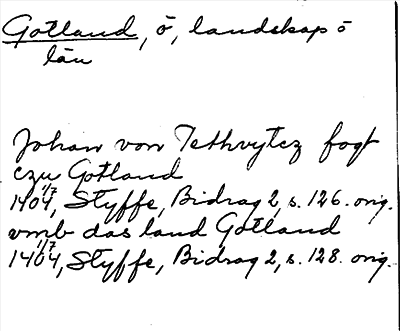 Gotland, ö, landskap o
län
Johan von Tethvytcz fogt
czu Gotland
1/7 1404, Styffe, Bidrag 2, s. 126. orig.
vmb das land Gotland
1/7 1404, Styffe, Bidrag 2, s. 128. orig.